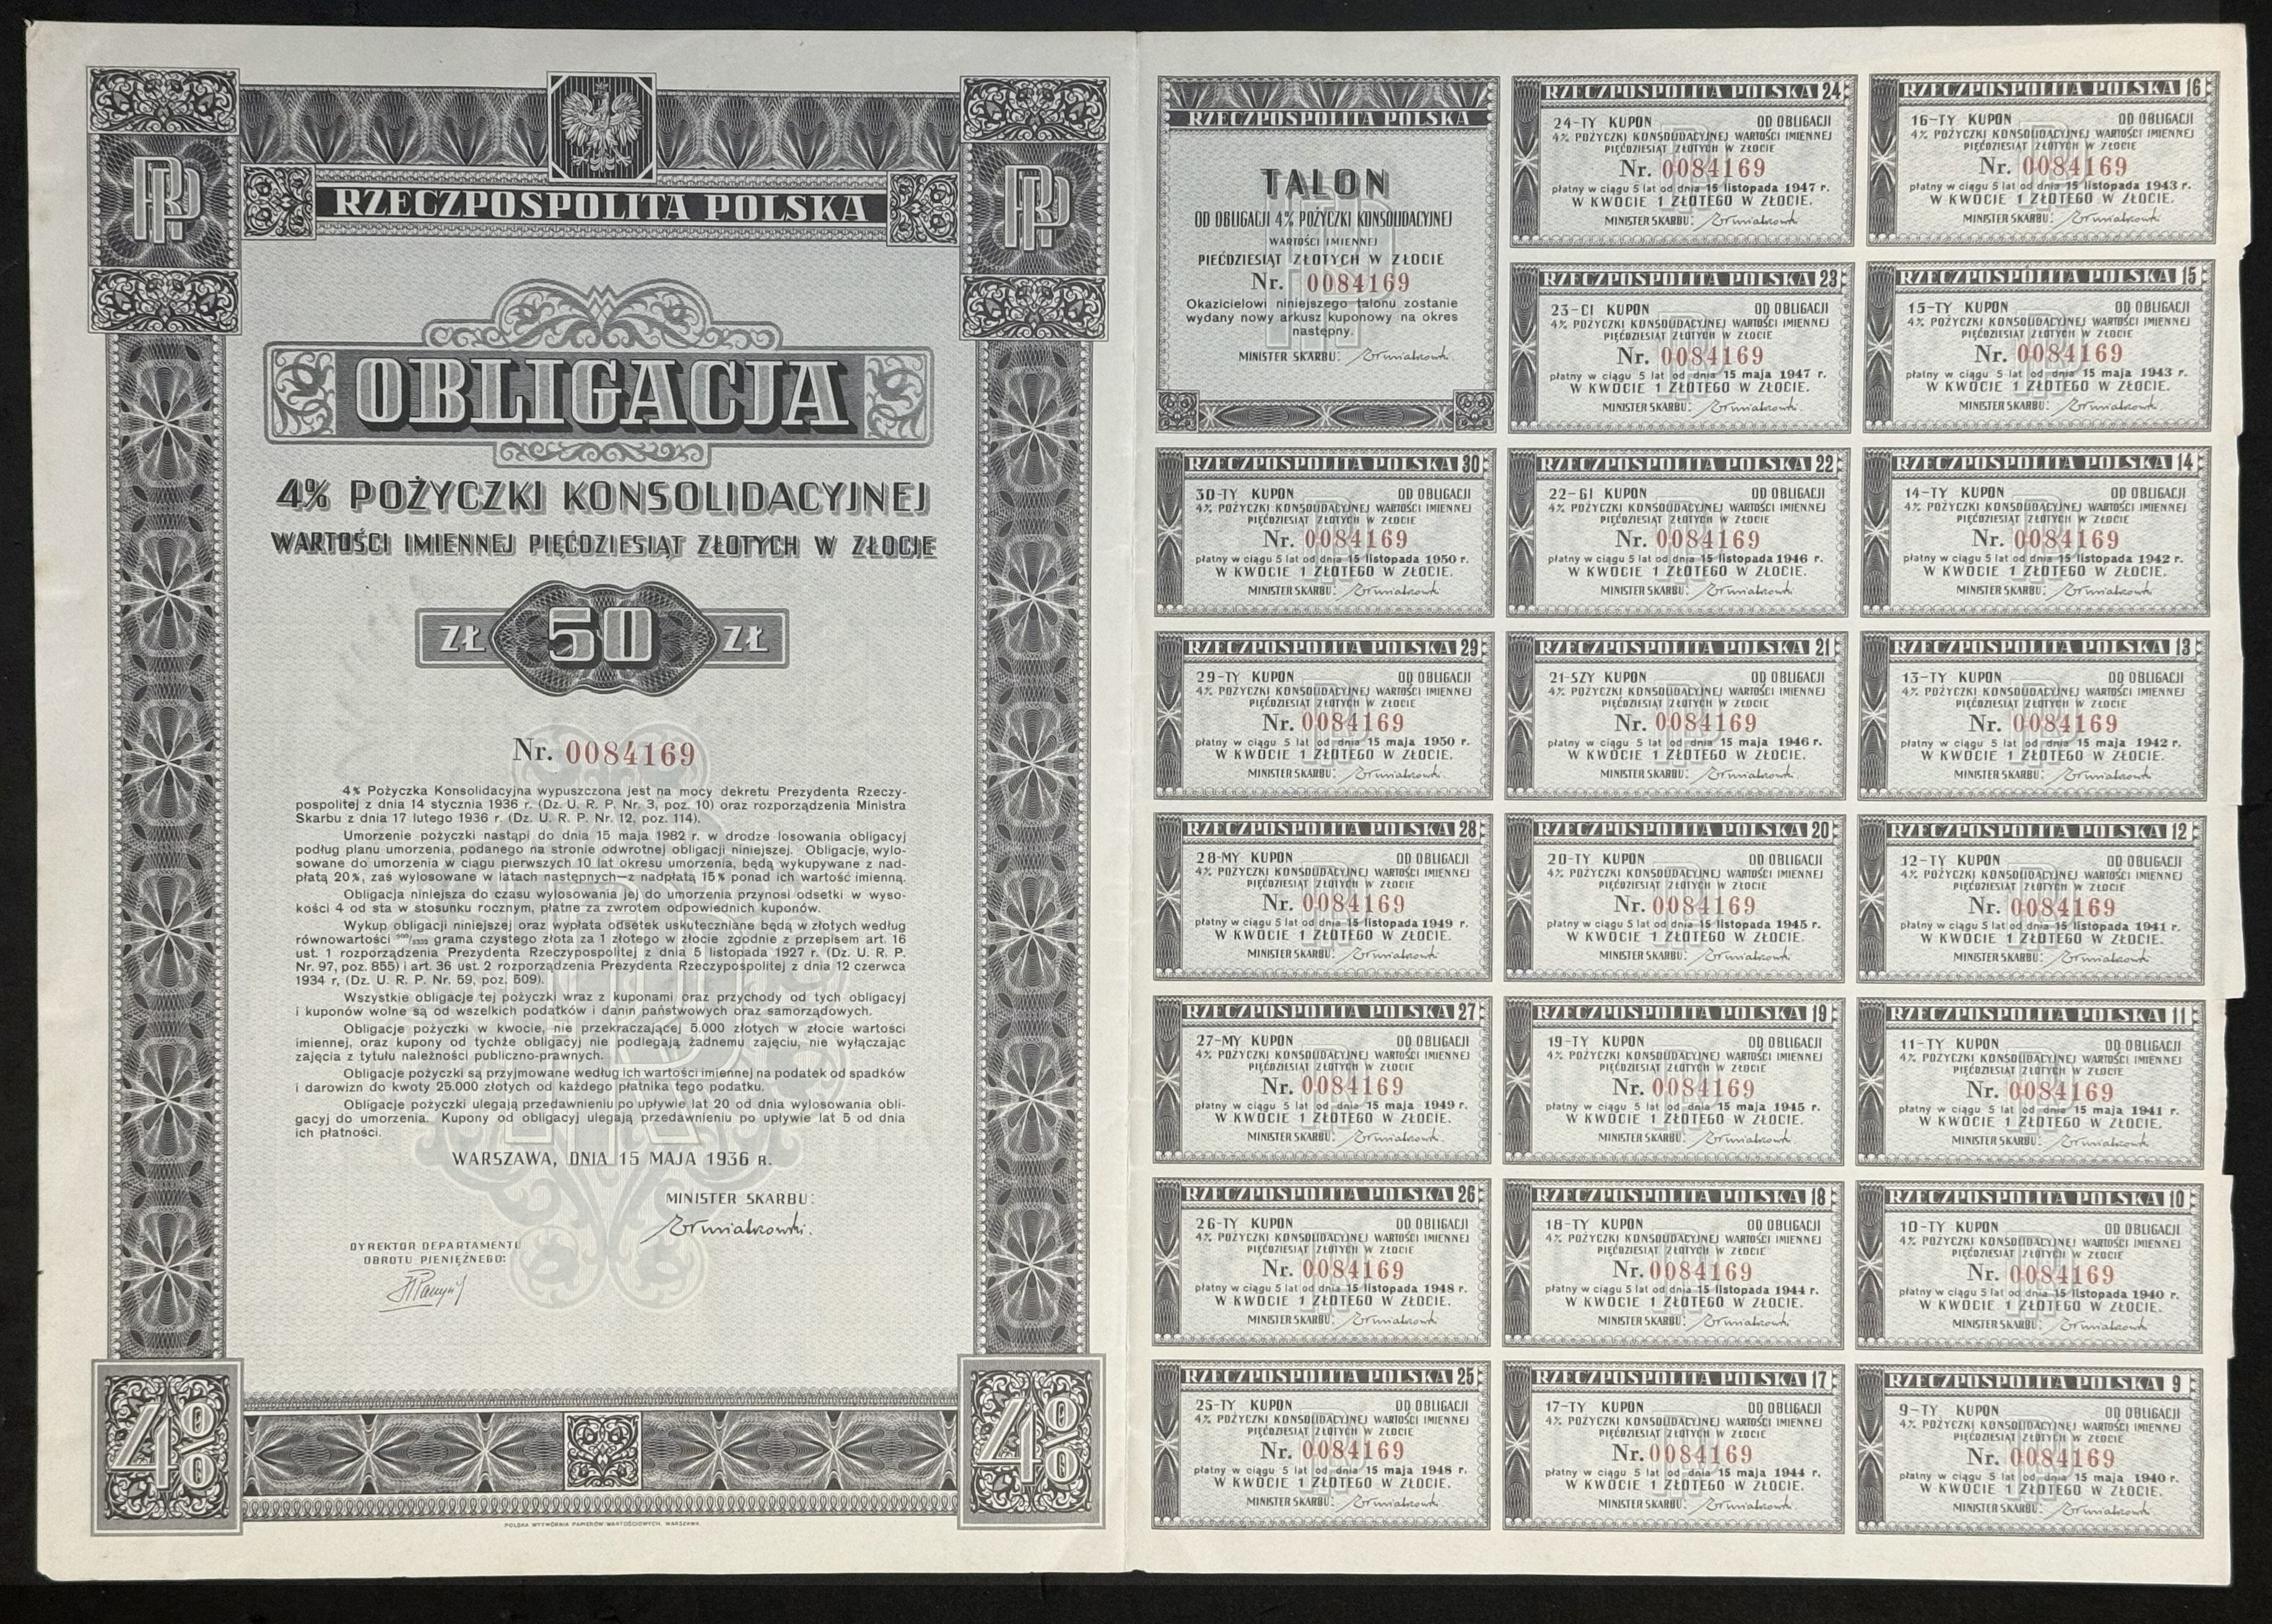 RP
RP
RZECZPOSPOLITA POLSKA
OBLIGACJA
4% POŻYCZKI KONSOLIDACYJNEJ
WARTOŚCI IMIENNEJ PIĘĆDZIESIĄT ZŁOTYCH W ZŁOCIE
ZŁ 50 ZŁ
Nr. 0084169
4% Pożyczka Konsolidacyjna wypuszczona jest na mocy dekretu Prezydenta Rzeczy-
pospolitej z dnia 14 stycznia 1936 r. (Dz. U. R. P. Nr. 3, poz. 10) oraz rozporządzenia Ministra
Skarbu z dnia 17 lutego 1936 r. (Dz. U. R. P. Nr. 12, poz. 114).
Umorzenie pożyczki nastąpi do dnia 15 maja 1982 r. w drodze losowania obligacyj
podług planu umorzenia, podanego na stronie odwrotnej obligacji niniejszej. Obligacje, wylo-
sowane do umorzenia w ciągu pierwszych 10 lat okresu umorzenia, będą wykupywane z nad-
płatą 20%, zaś wylosowane w latach następnych—z nadpłatą 15% ponad ich wartość imienną.
Obligacja niniejsza do czasu wylosowania jej do umorzenia przynosi odsetki w wyso-
kości 4 od sta w stosunku rocznym, płatne za zwrotem odpowiednich kuponów.
Wykup obligacji niniejszej oraz wypłata odsetek uskuteczniane będą w złotych według
równowartości 900/5332 grama czystego złota za 1 złotego w złocie zgodnie z przepisem art. 16
ust. 1 rozporządzenia Prezydenta Rzeczypospolitej z dnia 5 listopada 1927 r. (Dz. U. R. P.
Nr. 97, poz. 855) i art. 36 ust. 2 rozporządzenia Prezydenta Rzeczypospolitej z dnia 12 czerwca
1934 r, (Dz. U. R. P. Nr. 59, poz. 509).
Wszystkie obligacje tej pożyczki wraz z kuponami oraz przychody od tych obligacyj
i kuponów wolne są od wszelkich podatków i danin państwowych oraz samorządowych.
Obligacje pożyczki w kwocie, nie przekraczającej 5.000 złotych w złocie wartości
imiennej, oraz kupony od tychże obligacyj nie podlegają żadnemu zajęciu, nie wyłączając
zajęcia z tytułu należności publiczno-prawnych.
Obligacje pożyczki są przyjmowane według ich wartości imiennej na podatek od spadków
i darowizn do kwoty 25.000 złotych od każdego płatnika tego podatku.
Obligacje pożyczki ulegają przedawnieniu po upływie lat 20 od dnia wylosowania obli-
gacyj do umorzenia. Kupony od obligacyj ulegają przedawnieniu po upływie lat 5 od dnia
ich płatności.
WARSZAWA, DNIA 15 MAJA 1936 R.
MINISTER SKARBU:
DYREKTOR DEPARTAMENTU
OBROTU PIENIĘŻNEGO:
4%
4%
POLSKA WYTWÓRNIA PAPIERÓW WARTOŚCIOWYCH, WARSZAWA.
RZECZPOSPOLITA POLSKA
TALON
OD OBLIGACJI 4% POŻYCZKI KONSOLIDACYJNEJ
WARTOŚCI IMIENNEJ
PIĘĆDZIESIĄT ZŁOTYCH W ZŁOCIE
Nr. 0084169
Okazicielowi niniejszego talonu zostanie
wydany nowy arkusz kuponowy na okres
następny.
MINISTER SKARBU:
RZECZPOSPOLITA POLSKA 30
30-TY KUPON OD OBLIGACJI
4% POŻYCZKI KONSOLIDACYJNEJ WARTOŚCI IMIENNEJ
PIĘĆDZIESIĄT ZŁOTYCH W ZŁOCIE
Nr. 0084169
płatny w ciągu 5 lat od dnia 15 listopada 1950 r.
W KWOCIE 1 ZŁOTEGO W ZŁOCIE.
MINISTER SKARBU:
RZECZPOSPOLITA POLSKA 29
29-TY KUPON OD OBLIGACJI
4% POŻYCZKI KONSOLIDACYJNEJ WARTOŚCI IMIENNEJ
PIĘĆDZIESIĄT ZŁOTYCH W ZŁOCIE
Nr. 0084169
płatny w ciągu 5 lat od dnia 15 maja 1950 r.
W KWOCIE 1 ZŁOTEGO W ZŁOCIE.
MINISTER SKARBU:
RZECZPOSPOLITA POLSKA 28
28-MY KUPON OD OBLIGACJI
4% POŻYCZKI KONSOLIDACYJNEJ WARTOŚCI IMIENNEJ
PIĘĆDZIESIĄT ZŁOTYCH W ZŁOCIE
Nr. 0084169
płatny w ciągu 5 lat od dnia 15 listopada 1949 r.
W KWOCIE 1 ZŁOTEGO W ZŁOCIE.
MINISTER SKARBU:
RZECZPOSPOLITA POLSKA 27
27-MY KUPON OD OBLIGACJI
4% POŻYCZKI KONSOLIDACYJNEJ WARTOŚCI IMIENNEJ
PIĘĆDZIESIĄT ZŁOTYCH W ZŁOCIE
Nr. 0084169
płatny w ciągu 5 lat od dnia 15 maja 1949 r.
W KWOCIE 1 ZŁOTEGO W ZŁOCIE.
MINISTER SKARBU:
RZECZPOSPOLITA POLSKA 26
26-TY KUPON OD OBLIGACJI
4% POŻYCZKI KONSOLIDACYJNEJ WARTOŚCI IMIENNEJ
PIĘĆDZIESIĄT ZŁOTYCH W ZŁOCIE
Nr. 0084169
płatny w ciągu 5 lat od dnia 15 listopada 1948 r.
W KWOCIE 1 ZŁOTEGO W ZŁOCIE.
MINISTER SKARBU:
RZECZPOSPOLITA POLSKA 25
25-TY KUPON OD OBLIGACJI
4% POŻYCZKI KONSOLIDACYJNEJ WARTOŚCI IMIENNEJ
PIĘĆDZIESIĄT ZŁOTYCH W ZŁOCIE
Nr. 0084169
płatny w ciągu 5 lat od dnia 15 maja 1948 r.
W KWOCIE 1 ZŁOTEGO W ZŁOCIE.
MINISTER SKARBU:
RZECZPOSPOLITA POLSKA 24
24-TY KUPON OD OBLIGACJI
4% POŻYCZKI KONSOLIDACYJNEJ WARTOŚCI IMIENNEJ
PIĘĆDZIESIĄT ZŁOTYCH W ZŁOCIE
Nr. 0084169
płatny w ciągu 5 lat od dnia 15 listopada 1947 r.
W KWOCIE 1 ZŁOTEGO W ZŁOCIE.
MINISTER SKARBU:
RZECZPOSPOLITA POLSKA 23
23-CI KUPON OD OBLIGACJI
4% POŻYCZKI KONSOLIDACYJNEJ WARTOŚCI IMIENNEJ
PIĘĆDZIESIĄT ZŁOTYCH W ZŁOCIE
Nr. 0084169
płatny w ciągu 5 lat od dnia 15 maja 1947 r.
W KWOCIE 1 ZŁOTEGO W ZŁOCIE.
MINISTER SKARBU:
RZECZPOSPOLITA POLSKA 22
22-GI KUPON OD OBLIGACJI
4% POŻYCZKI KONSOLIDACYJNEJ WARTOŚCI IMIENNEJ
PIĘĆDZIESIĄT ZŁOTYCH W ZŁOCIE
Nr. 0084169
płatny w ciągu 5 lat od dnia 15 listopada 1946 r.
W KWOCIE 1 ZŁOTEGO W ZŁOCIE.
MINISTER SKARBU:
RZECZPOSPOLITA POLSKA 21
21-SZY KUPON OD OBLIGACJI
4% POŻYCZKI KONSOLIDACYJNEJ WARTOŚCI IMIENNEJ
PIĘĆDZIESIĄT ZŁOTYCH W ZŁOCIE
Nr. 0084169
płatny w ciągu 5 lat od dnia 15 maja 1946 r.
W KWOCIE 1 ZŁOTEGO W ZŁOCIE.
MINISTER SKARBU:
RZECZPOSPOLITA POLSKA 20
20-TY KUPON OD OBLIGACJI
4% POŻYCZKI KONSOLIDACYJNEJ WARTOŚCI IMIENNEJ
PIĘĆDZIESIĄT ZŁOTYCH W ZŁOCIE
Nr. 0084169
płatny w ciągu 5 lat od dnia 15 listopada 1945 r.
W KWOCIE 1 ZŁOTEGO W ZŁOCIE.
MINISTER SKARBU:
RZECZPOSPOLITA POLSKA 19
19-TY KUPON OD OBLIGACJI
4% POŻYCZKI KONSOLIDACYJNEJ WARTOŚCI IMIENNEJ
PIĘĆDZIESIĄT ZŁOTYCH W ZŁOCIE
Nr. 0084169
płatny w ciągu 5 lat od dnia 15 maja 1945 r.
W KWOCIE 1 ZŁOTEGO W ZŁOCIE.
MINISTER SKARBU:
RZECZPOSPOLITA POLSKA 18
18-TY KUPON OD OBLIGACJI
4% POŻYCZKI KONSOLIDACYJNEJ WARTOŚCI IMIENNEJ
PIĘĆDZIESIĄT ZŁOTYCH W ZŁOCIE
Nr. 0084169
płatny w ciągu 5 lat od dnia 15 listopada 1944 r.
W KWOCIE 1 ZŁOTEGO W ZŁOCIE.
MINISTER SKARBU:
RZECZPOSPOLITA POLSKA 17
17-TY KUPON OD OBLIGACJI
4% POŻYCZKI KONSOLIDACYJNEJ WARTOŚCI IMIENNEJ
PIĘĆDZIESIĄT ZŁOTYCH W ZŁOCIE
Nr. 0084169
płatny w ciągu 5 lat od dnia 15 maja 1944 r.
W KWOCIE 1 ZŁOTEGO W ZŁOCIE.
MINISTER SKARBU:
RZECZPOSPOLITA POLSKA 16
16-TY KUPON OD OBLIGACJI
4% POŻYCZKI KONSOLIDACYJNEJ WARTOŚCI IMIENNEJ
PIĘĆDZIESIĄT ZŁOTYCH W ZŁOCIE
Nr. 0084169
płatny w ciągu 5 lat od dnia 15 listopada 1943 r.
W KWOCIE 1 ZŁOTEGO W ZŁOCIE.
MINISTER SKARBU:
RZECZPOSPOLITA POLSKA 15
15-TY KUPON OD OBLIGACJI
4% POŻYCZKI KONSOLIDACYJNEJ WARTOŚCI IMIENNEJ
PIĘĆDZIESIĄT ZŁOTYCH W ZŁOCIE
Nr. 0084169
płatny w ciągu 5 lat od dnia 15 maja 1943 r.
W KWOCIE 1 ZŁOTEGO W ZŁOCIE.
MINISTER SKARBU:
RZECZPOSPOLITA POLSKA 14
14-TY KUPON OD OBLIGACJI
4% POŻYCZKI KONSOLIDACYJNEJ WARTOŚCI IMIENNEJ
PIĘĆDZIESIĄT ZŁOTYCH W ZŁOCIE
Nr. 0084169
płatny w ciągu 5 lat od dnia 15 listopada 1942 r.
W KWOCIE 1 ZŁOTEGO W ZŁOCIE.
MINISTER SKARBU:
RZECZPOSPOLITA POLSKA 13
13-TY KUPON OD OBLIGACJI
4% POŻYCZKI KONSOLIDACYJNEJ WARTOŚCI IMIENNEJ
PIĘĆDZIESIĄT ZŁOTYCH W ZŁOCIE
Nr. 0084169
płatny w ciągu 5 lat od dnia 15 maja 1942 r.
W KWOCIE 1 ZŁOTEGO W ZŁOCIE.
MINISTER SKARBU:
RZECZPOSPOLITA POLSKA 12
12-TY KUPON OD OBLIGACJI
4% POŻYCZKI KONSOLIDACYJNEJ WARTOŚCI IMIENNEJ
PIĘĆDZIESIĄT ZŁOTYCH W ZŁOCIE
Nr. 0084169
płatny w ciągu 5 lat od dnia 15 listopada 1941 r.
W KWOCIE 1 ZŁOTEGO W ZŁOCIE.
MINISTER SKARBU:
RZECZPOSPOLITA POLSKA 11
11-TY KUPON OD OBLIGACJI
4% POŻYCZKI KONSOLIDACYJNEJ WARTOŚCI IMIENNEJ
PIĘĆDZIESIĄT ZŁOTYCH W ZŁOCIE
Nr. 0084169
płatny w ciągu 5 lat od dnia 15 maja 1941 r.
W KWOCIE 1 ZŁOTEGO W ZŁOCIE.
MINISTER SKARBU:
RZECZPOSPOLITA POLSKA 10
10-TY KUPON OD OBLIGACJI
4% POŻYCZKI KONSOLIDACYJNEJ WARTOŚCI IMIENNEJ
PIĘĆDZIESIĄT ZŁOTYCH W ZŁOCIE
Nr. 0084169
płatny w ciągu 5 lat od dnia 15 listopada 1940 r.
W KWOCIE 1 ZŁOTEGO W ZŁOCIE.
MINISTER SKARBU:
RZECZPOSPOLITA POLSKA 9
9-TY KUPON OD OBLIGACJI
4% POŻYCZKI KONSOLIDACYJNEJ WARTOŚCI IMIENNEJ
PIĘĆDZIESIĄT ZŁOTYCH W ZŁOCIE
Nr. 0084169
płatny w ciągu 5 lat od dnia 15 maja 1940 r.
W KWOCIE 1 ZŁOTEGO W ZŁOCIE.
MINISTER SKARBU: